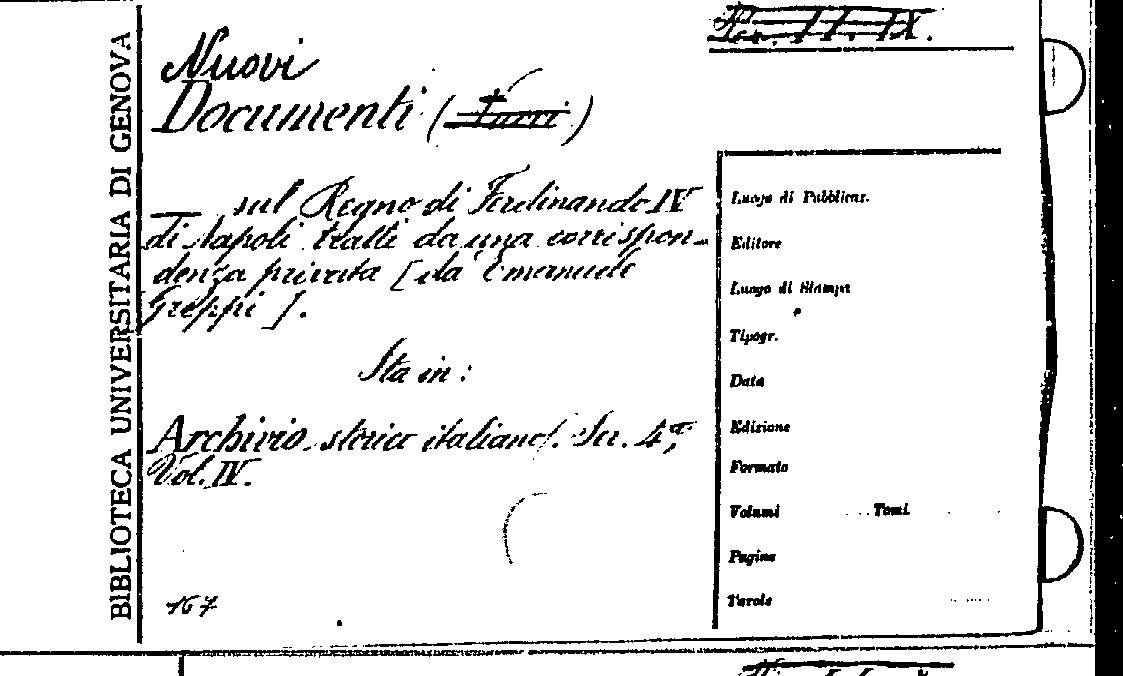 BIBLIOTECA UNIVERSITARIA DI GENOVA
Per. II. IX.
Nuovi
Documenti ( )
— sul Regno di Ferdinando IV
di Napoli tratti da una corrispon-
denza privata [da Emanuele
Greppi].
Sta in:
Archivio storico italiano. Ser. 4ª,
Vol. IV.
167
Luogo di Pubblicaz.
Editore
Luogo di Stampa
Tipogr.
Data
Edizione
Formato
Volumi Tomi
Pagine
Tavole